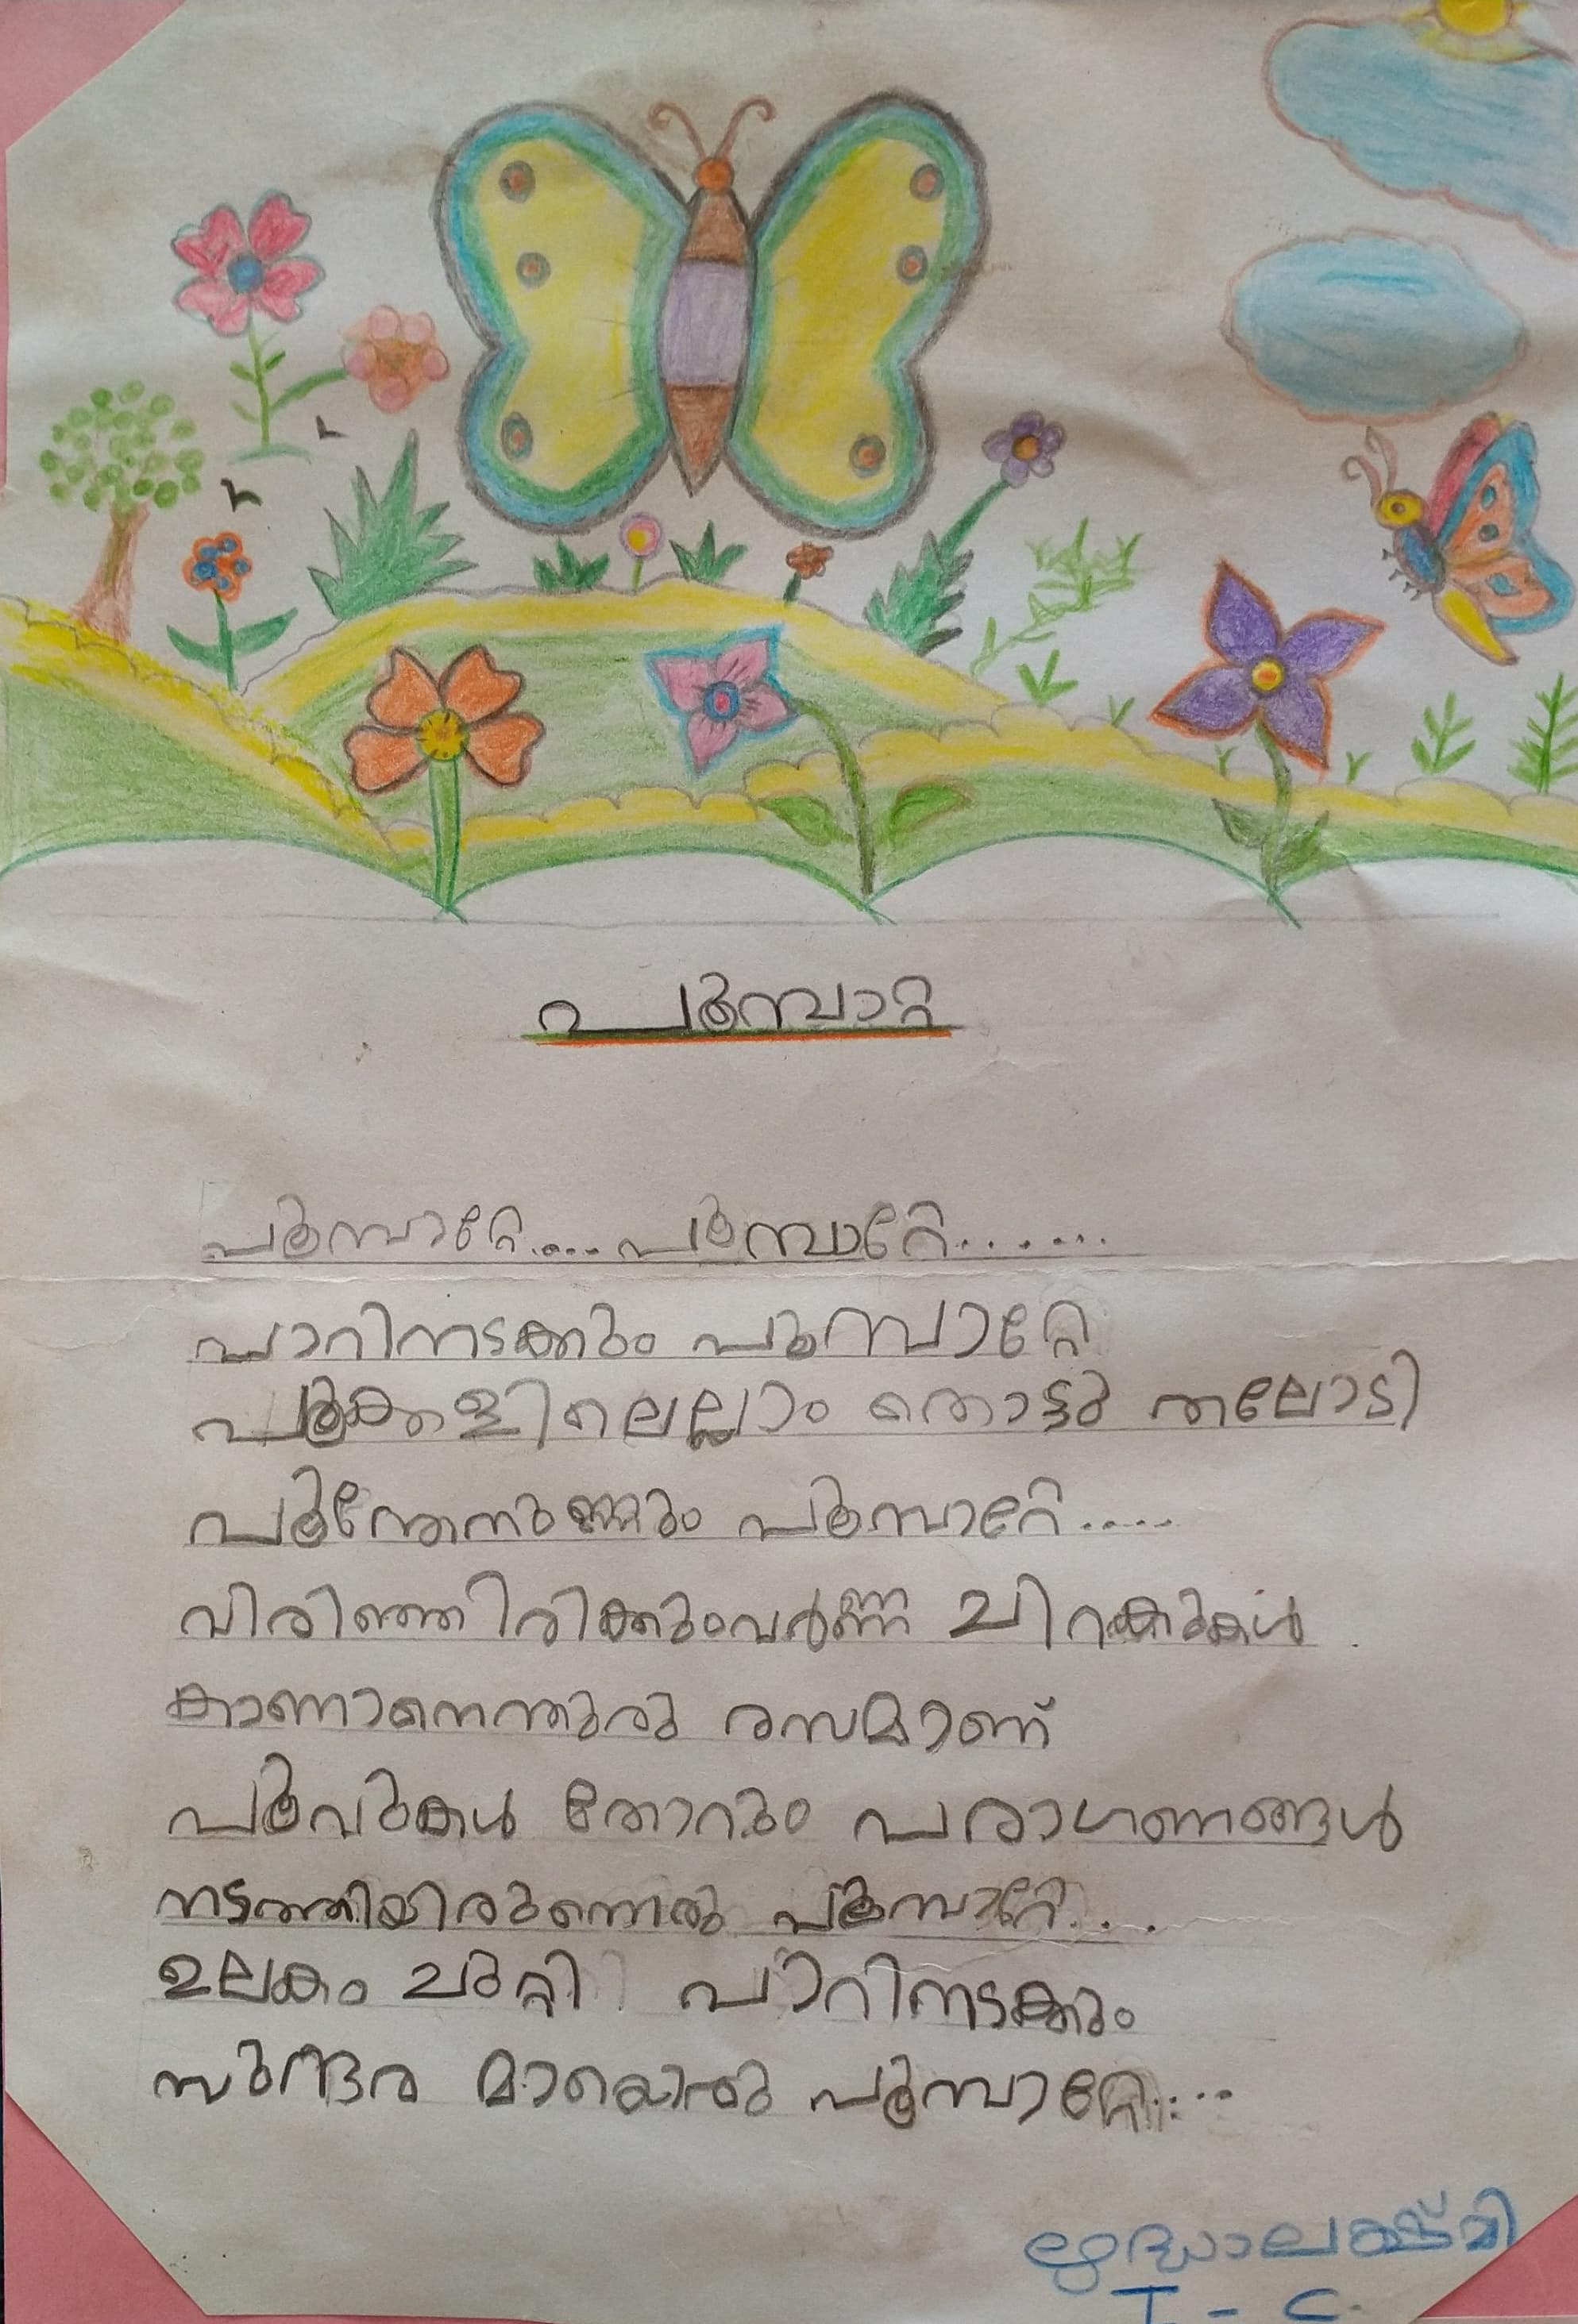 പൂമ്പാറ്റ
പൂമ്പാറ്റേ.... പൂമ്പാറ്റേ.......
പാറിനടക്കും പൂമ്പാറ്റേ
പൂക്കളിലെല്ലാം തൊട്ടു തലോടി
പൂന്തേനുണ്ണും പൂമ്പാറ്റേ.....
വിരിഞ്ഞിരിക്കുംവർണ്ണ ചിറകുകൾ
കാണാനെന്തുരു രസമാണ്
പൂവുകൾ തോറും പരാഗണങ്ങൾ
നടത്തിയിരുന്നൊരു പൂമ്പാറ്റേ....
ഉലകം ചുറ്റി പാറിനടക്കും
സുന്ദര മായൊരു പൂമ്പാറ്റേ.....
ശ്രദ്ധാലക്ഷ്മി
I - C